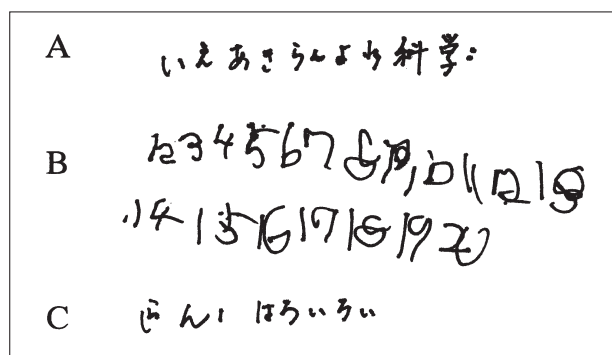 A いえあきらんよ 科学:
B 1234567891011121319
14151617181920
C らん、はろいろい